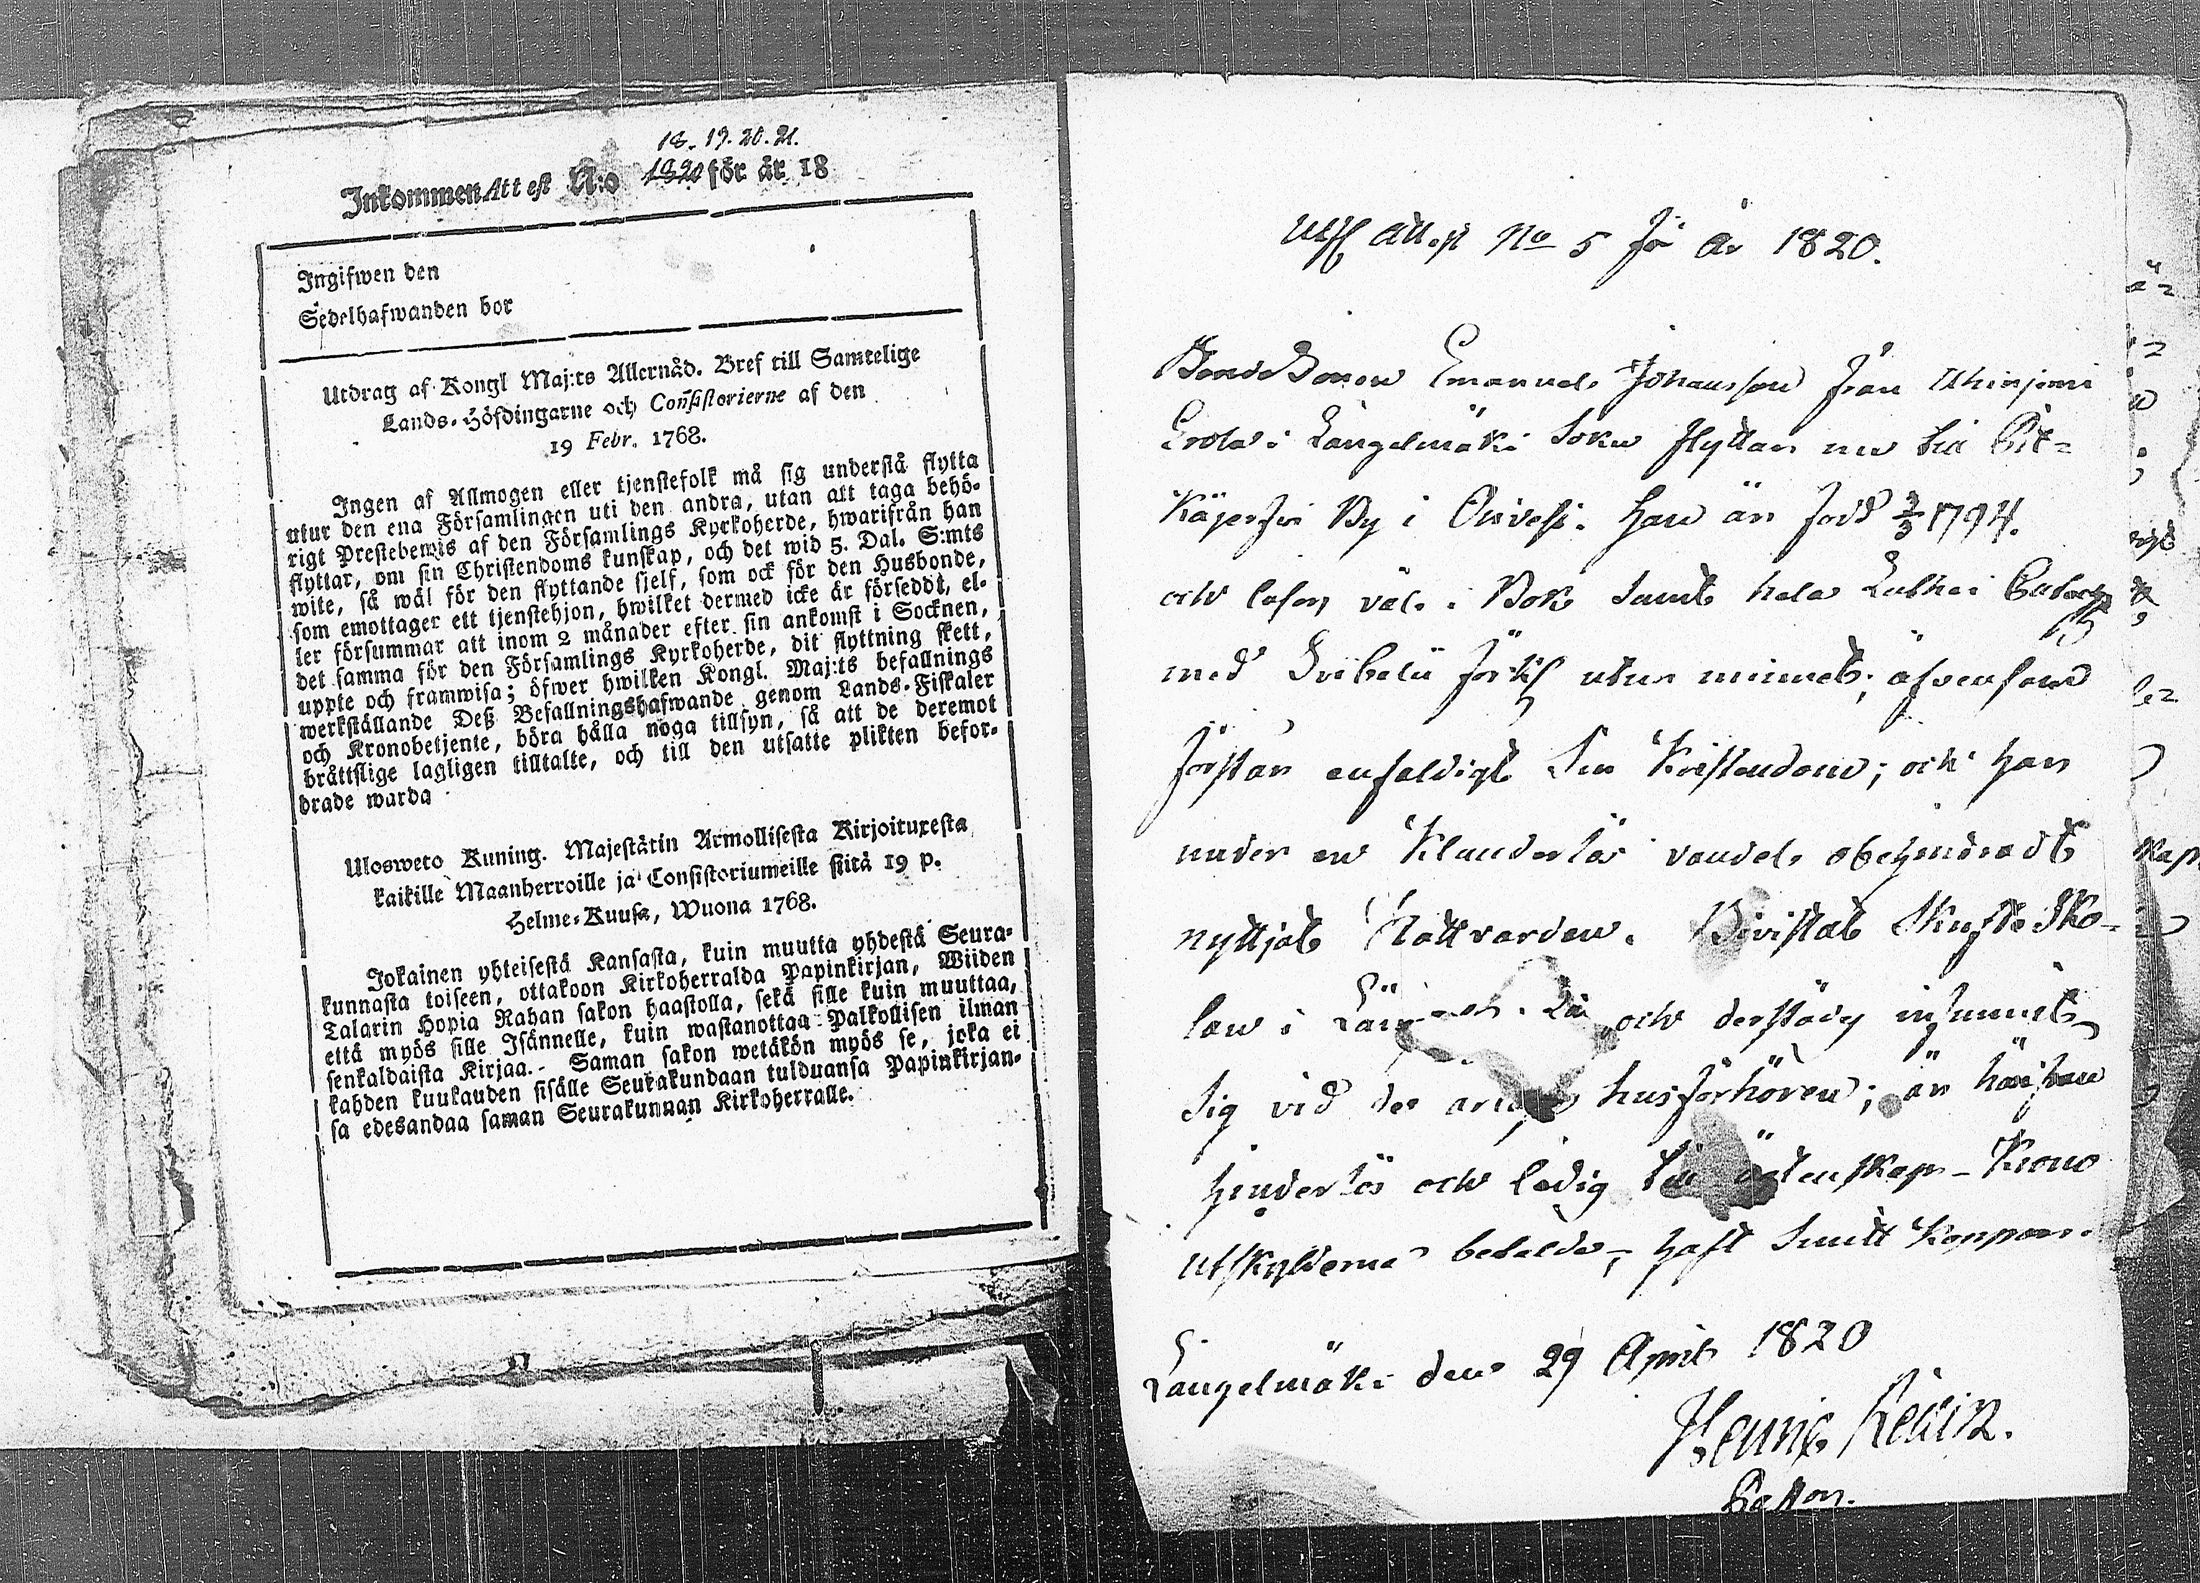 18. 19. 20. 21.
Inkommen Attest N:o 1820 för år 18
Ingifwen den
Sedelhafwanden bor
Utdrag af Kongl Maj:ts Allernåd. Bref till Samtelige
Lands-Höfdingarne och Consistorierne af den
19 Febr. 1768.
Ingen af Allmogen eller tjenstefolk må sig understå flytta
utur den ena Församlingen uti den andra, utan att taga behö-
rigt Prestebewis af den Församlings Kyrkoherde, hwarifrån han
flyttar, om sin Christendoms kunskap, och det wid 5. Dal. S:mts
wite, så wäl för den flyttande sjelf, som ock för den Husbonde,
som emottager ett tjenstehjon, hwilket dermed icke är förseddt, el-
ler försummar att inom 2 månader efter sin ankomst i Socknen,
det samma för den Församlings Kyrkoherde, dit flyttning skett,
uppte och framwisa; öfwer hwilken Kongl. Maj:ts befallnings
werkställande Deß Befallningshafwande genom Lands-Fiskaler
och Kronobetjente, böra hålla noga tillsyn, så att de deremot
bråttslige lagligen tilltalte, och till den utsatte plikten befor-
drade warda
Ulosweto Kuning. Majestätin Armollisesta Kirjoituxesta
kaikille Maanherroille ja Consistoriumeille siitä 19 p.
Helme-Kuusa, Wuona 1768.
Jokainen yhteisestä Kansasta, kuin muutta yhdestä Seura-
kunnasta toiseen, ottakoon Kirkoherralda Papinkirjan, Wiiden
Talarin Hopia Rahan sakon haastolla, sekä sille kuin muuttaa,
että myös sille Isännelle, kuin wastanottaa Palkollisen ilman
senkaldaista Kirjaa. - Saman sakon wetäkön myös se, joka ei
kahden kuukauden sisälle Seurakundaan tulduansa Papinkirjan-
sa edesandaa saman Seurakunnan Kirkoherralle.
Attest No 5 för år 1820.
Bonde Sonen Emanuel Johansson från
Erola i Längelmäki Sokn flyttar nu till Pit-
käjerfvi By i Orivesi. Han är född 2/3 1794.
och läser väl i Bok samt hela Lutheri
med Svebelii utur minnet; äfvensom
förstår enfaldigt sin Kristendom; och har
under en klanderlös vandel obehindradt
nyttjat Nattvarden. Bivistat Skrift Sko-
lan i och derstädes infunnit
sig vid de husförhören; är härifrån
hinderlös och ledig till äktenskap - Krono
utskylderna betalda, haft Smitt Koppor.
Längelmäki den 29 April 1820
Pastor.